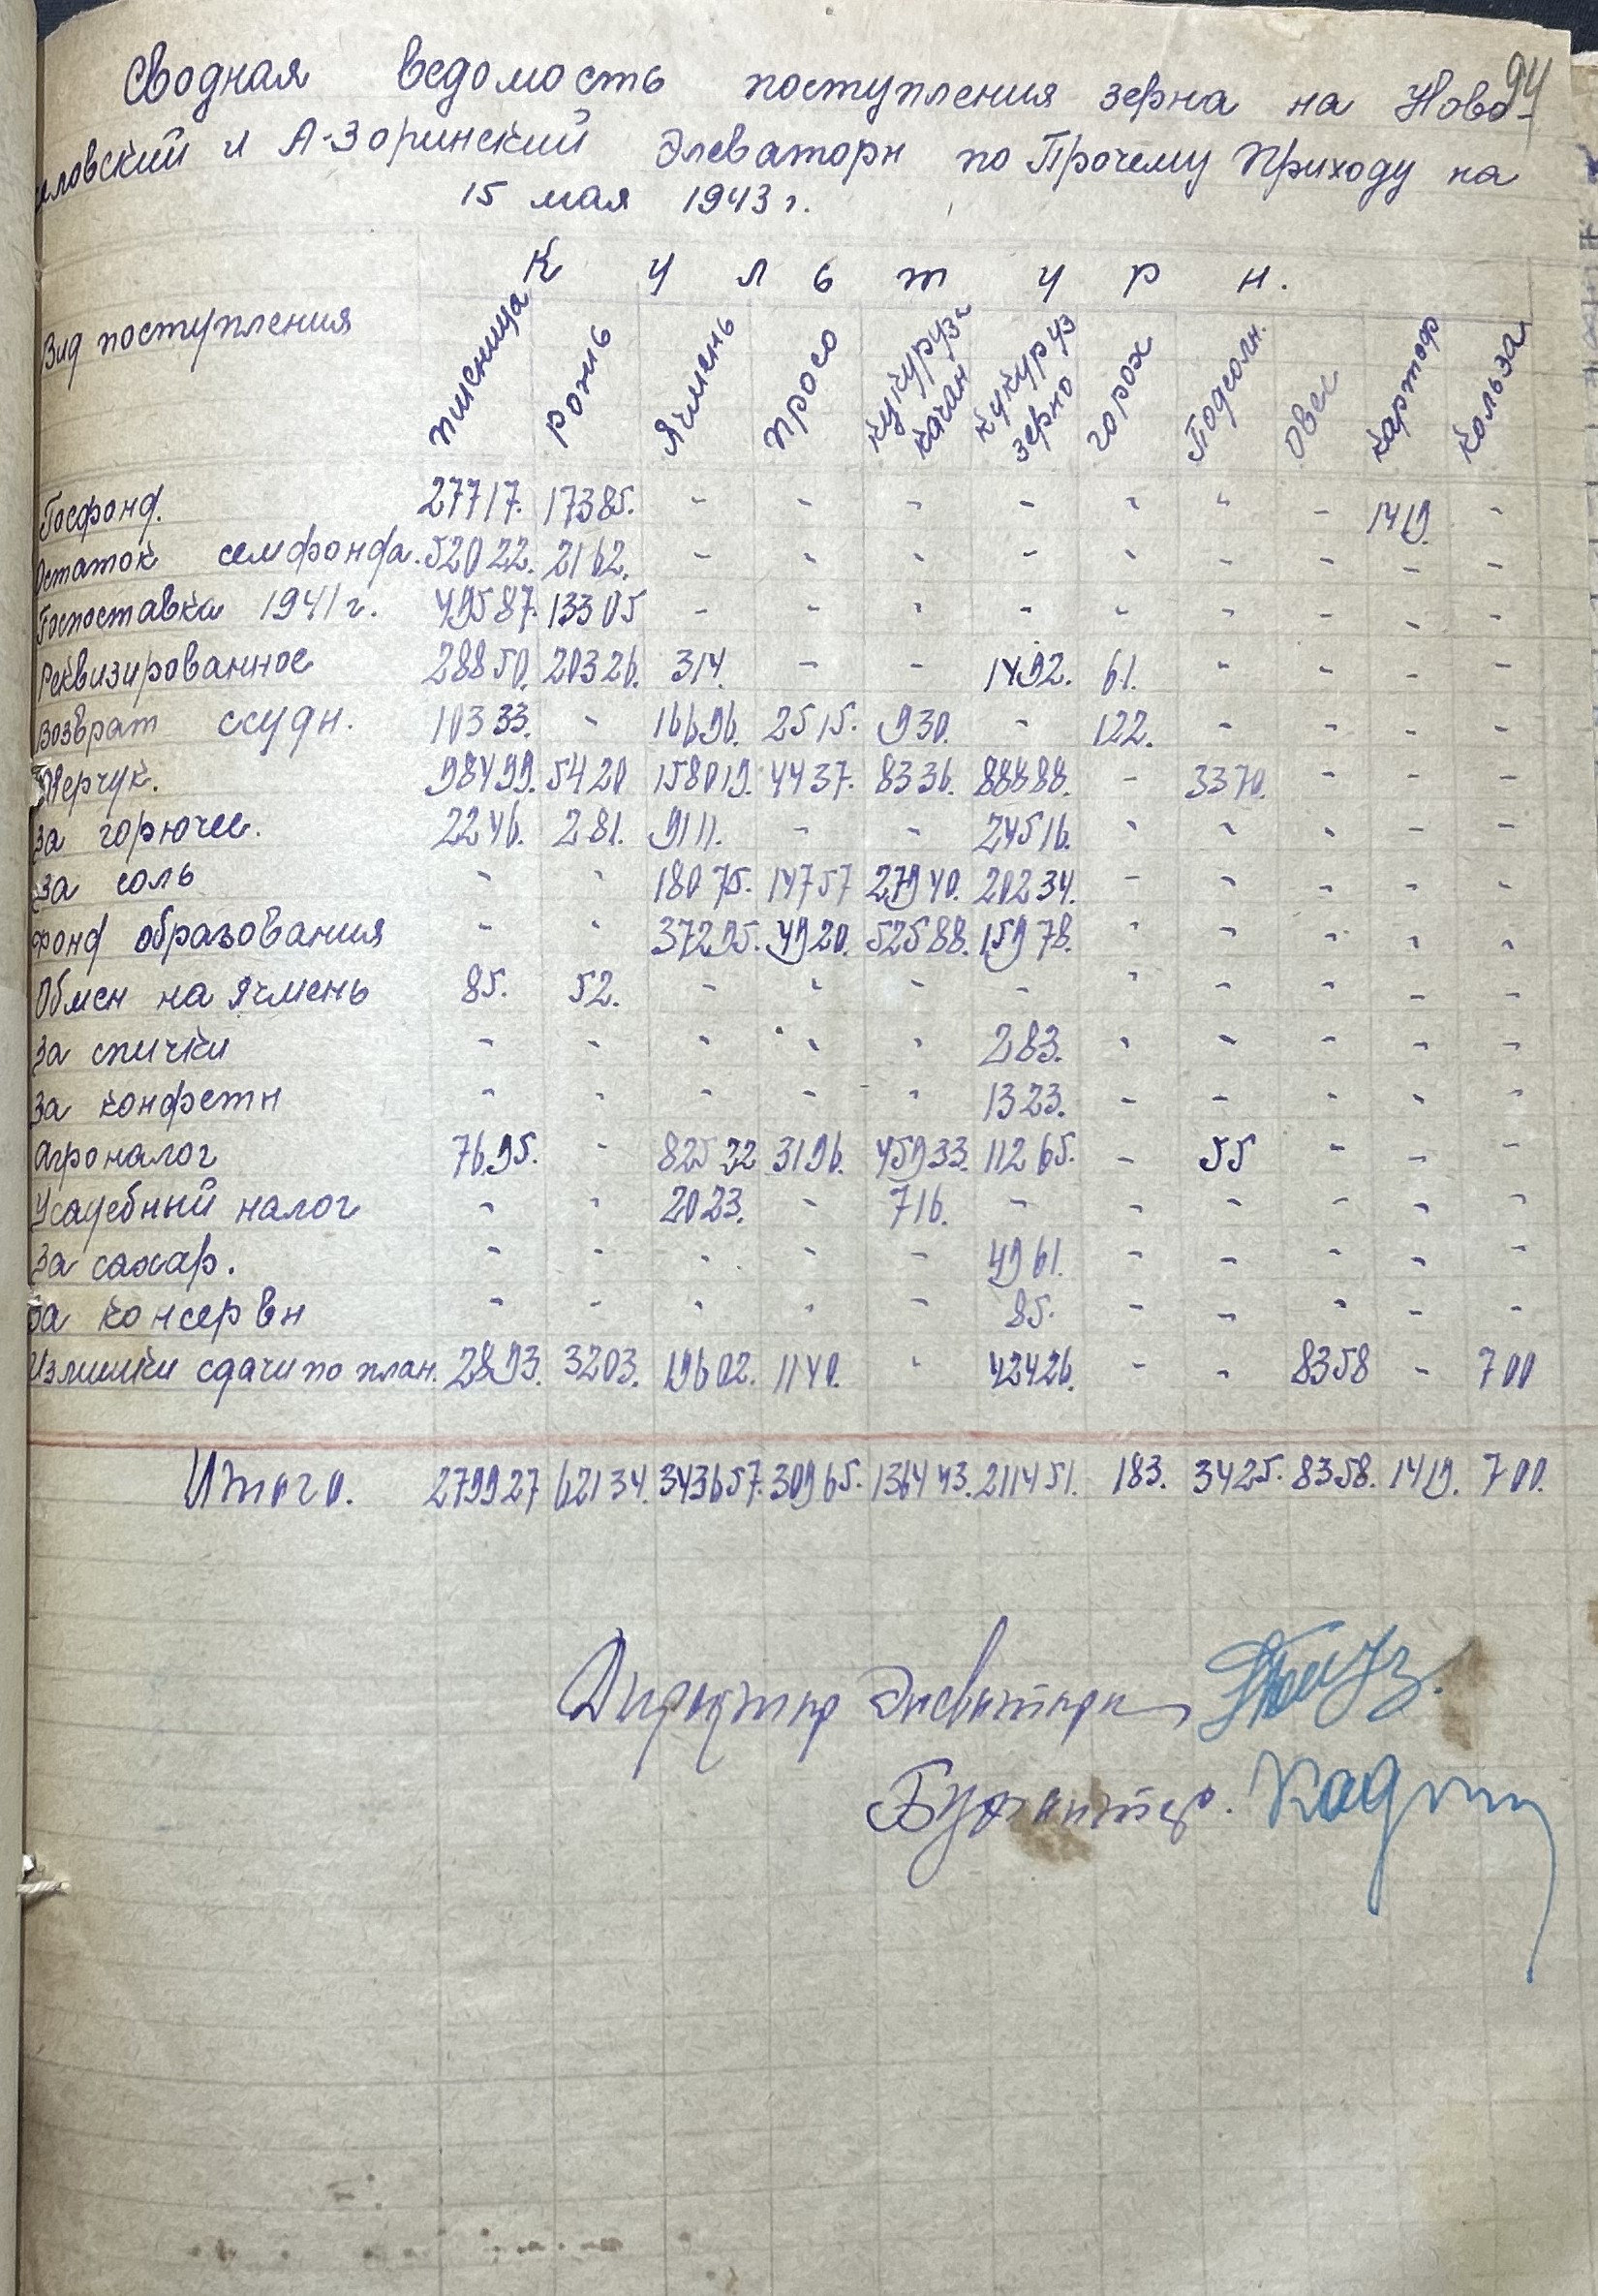 94
Сводная ведомость поступления зерна на Ново-
еловский и А-Зоринский Элеваторы по Прочему Приходу на
15 мая 1943 г.
Культуры.
Вид поступления пшеница рожь Ячмень просо кукуруза качан кукуруз зерно горох Подсолн. Овес картоф кользa
Госфонд. 27717. 17385. - - - - - - - 1419. -
Остаток семфонда. 52022. 2162. - - - - - - - - -
Госпоставка 1941 г. 49587. 13305 - - - - - - - - -
Реквизированное 28850. 20326. 314. - - 1492. 61. - - - -
Возврат ссудн. 10333. - 16696. 2515. 930. - 122. - - - -
Мерчук. 98499. 5420 158019. 4437. 8336. 88888. - 3370. - - -
За горючее. 2246. 281. 9111. - - 24516. - - - - -
За соль - - 18075. 14757 27940. 20234. - - - - -
Фонд образования - - 37295. 4920. 52588. 15978. - - - - -
Обмен на Ячмень 85. 52. - - - - - - - - -
За спички - - - - - 283. - - - - -
За конфеты - - - - - 1323. - - - - -
Агроналог 7695. - 82522 3196. 45933. 11265. - 55 - - -
Усадебный налог - - 2023. - 716. - - - - - -
За сахар. - - - - - 4961. - - - - -
За консервы - - - - - 85. - - - - -
Излишки сдачи по план. 2893. 3203. 19602. 1140. - 42426. - - 8358 - 700
Итого. 279927 62134. 343657. 30965. 136443. 211451. 183. 3425. 8358. 1419. 700.
Директор Элеватора
Бухгалтер.